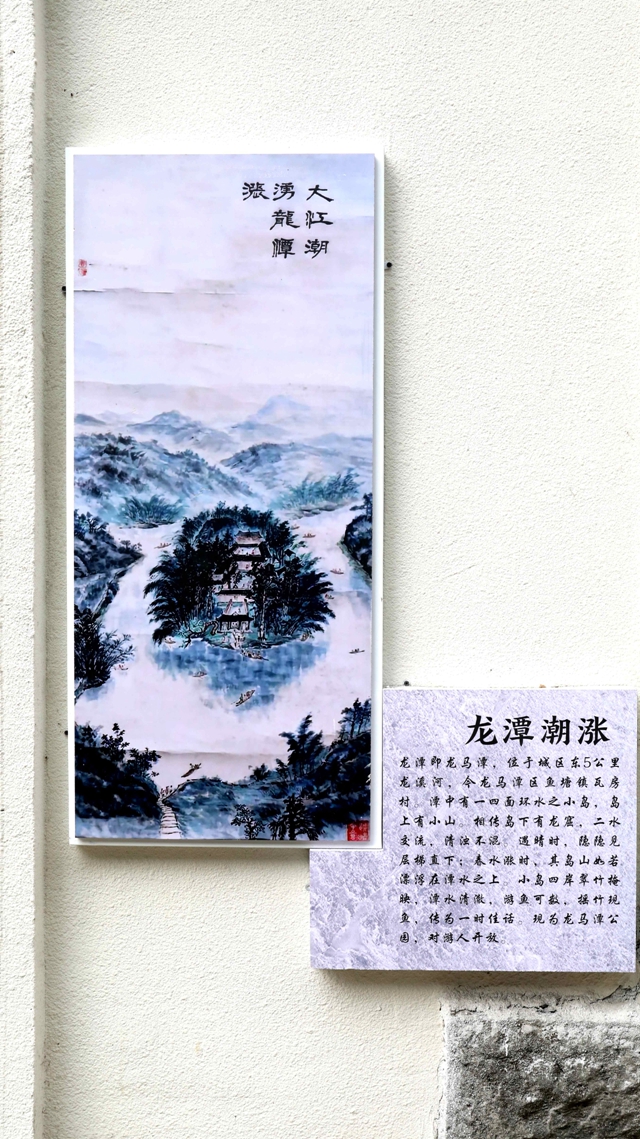 大江潮
湧龍潭
漲
龙潭潮涨
龙潭即龙马潭，位于城区东5公里
龙溪河，今龙马潭区鱼塘镇瓦房
村。潭中有一四面环水之小岛，岛
上有小山。相传岛下有龙窟，二水
交流，清浊不混。遇晴时，隐隐见
层梯直下；春水涨时，其岛山如若
漂浮在潭水之上。小岛四岸翠竹掩
映，潭水清澈，游鱼可数，摇竹现
鱼，传为一时佳话。现为龙马潭公
园，对游人开放。